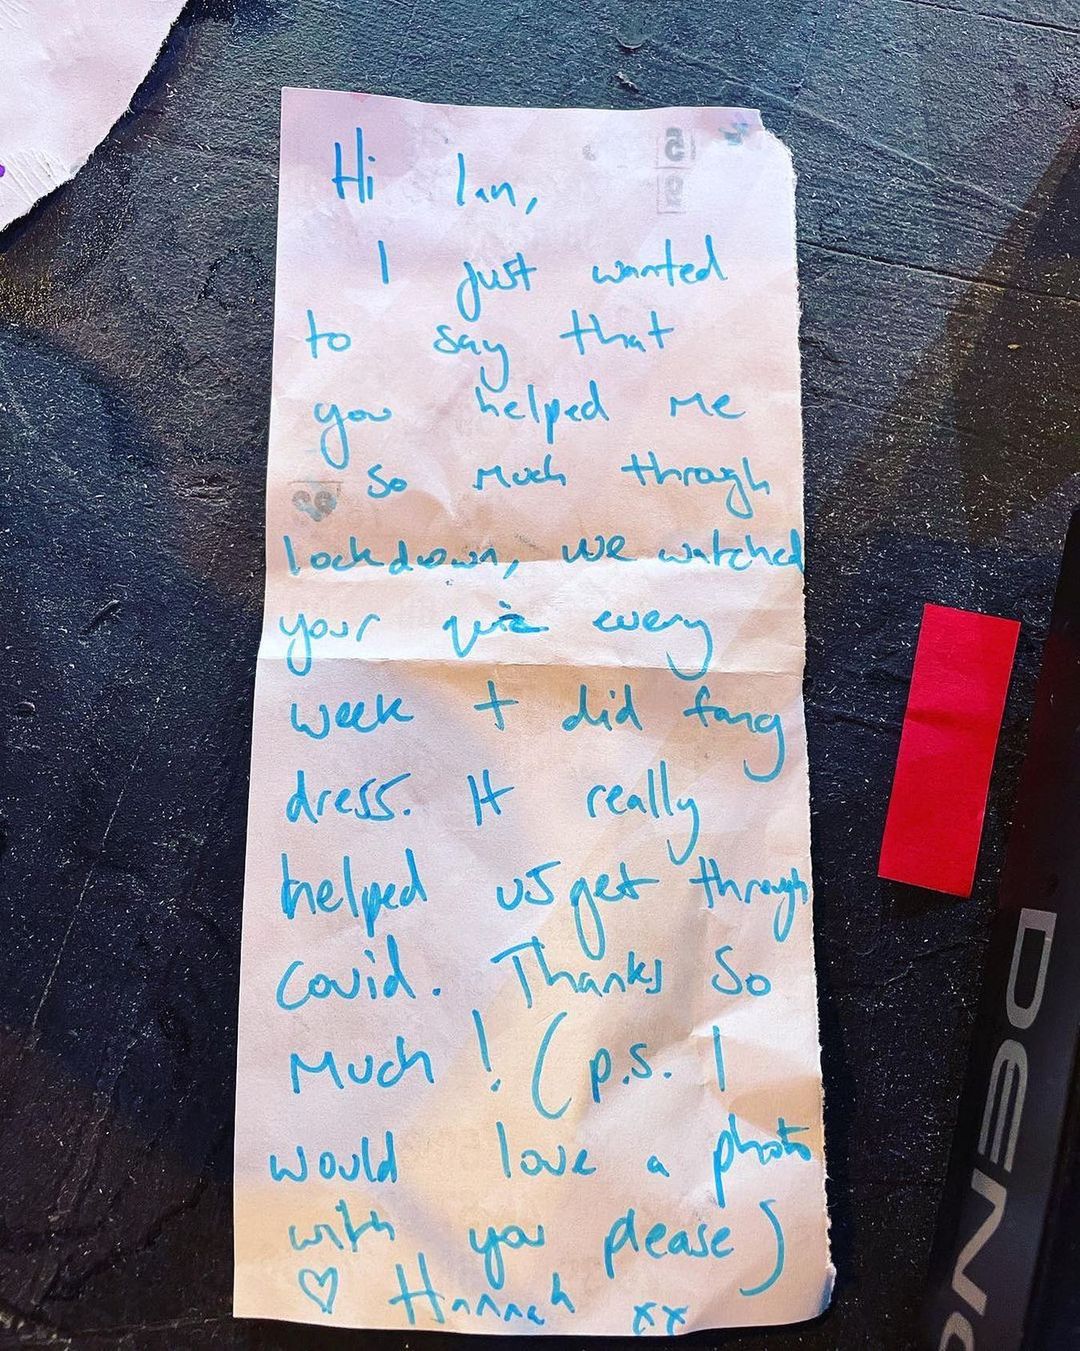 Hi Ian,
I just wanted
to say that
you helped me
so much through
lockdown, we watched
your quiz every
week + did fang
dress. It really
helped us get through
covid. Thanks so
much! (p.s. I
would love a photo
with you please)
♡ Hannah xx
DENON